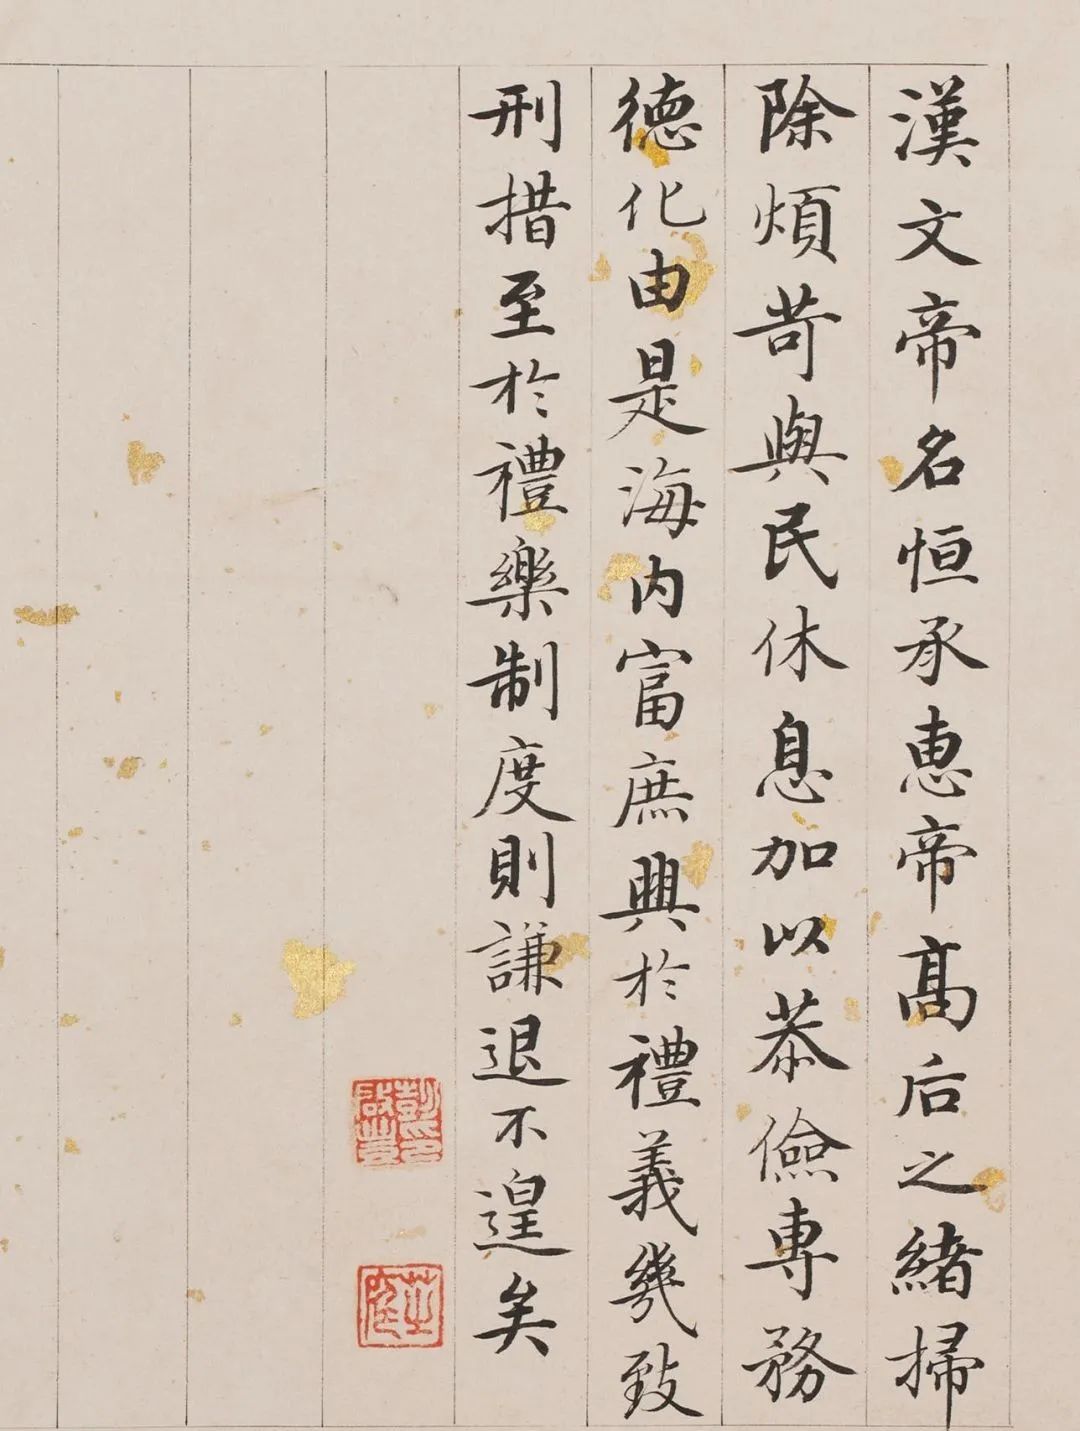 漢文帝名恒承恵帝髙后之緒掃
除煩苛與民休息加以恭儉專務
德化由是海内富庶興於禮義幾致
刑措至於禮樂制度則謙退不遑矣
彭啟豐印